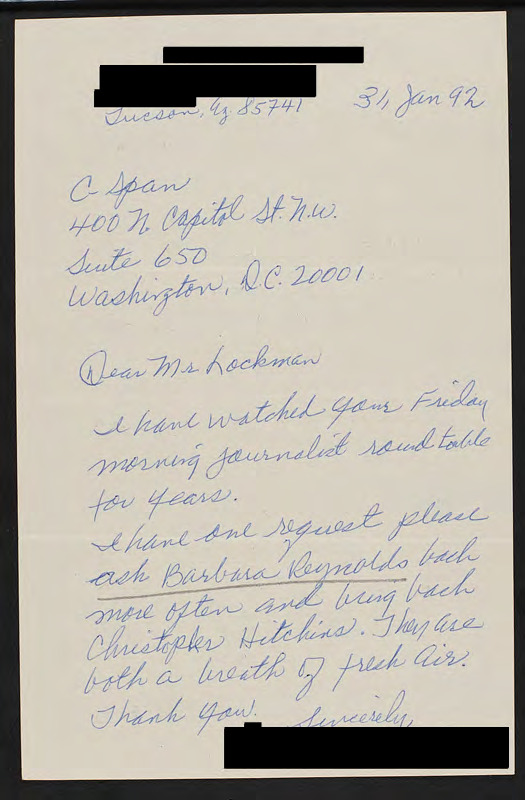 Tucson, Az 85741 31, Jan 92
C-Span
400 N. Capitol St. N.W.
Suite 650
Washington, D.C. 20001
Dear Mr Lockman
I have watched your Friday
morning journalist roundtable
for years.
I have one request please
ask Barbara Reynolds back
more often and bring back
Christopher Hitchins. They are
both a breath of fresh air.
Thank you.
Sincerely,